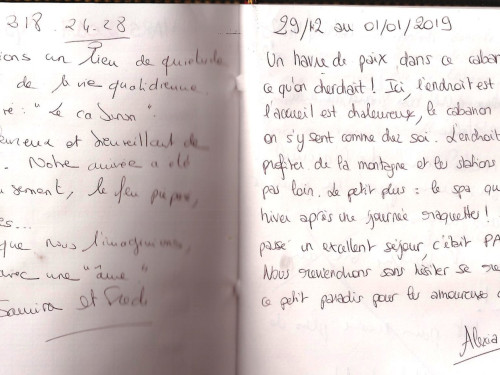 318. 24.28
ions un lieu de quiétude
de la vie quotidienne.
: "Le ca
et de
. Notre arrivée a été
sement, le feu prépar,
es...
que nous l'imaginions,
avec une "âme"
Samira et Fred
29/12 au 01/01/2019
Un havre de paix dans ce caban
ce qu'on cherchait! Ici, l'endroit est
l'accueil est chaleureux, le cabanon
on s'y sent comme chez soi. L'endroit
profiter de la montagne et les stations
pas loin. Le petit plus : le spa qu
hiver après une journée raquettes!
passé un excellent séjour, c'était PA
Nous reviendrons sans hésiter se re
ce petit paradis pour les amoureux d
Alexia